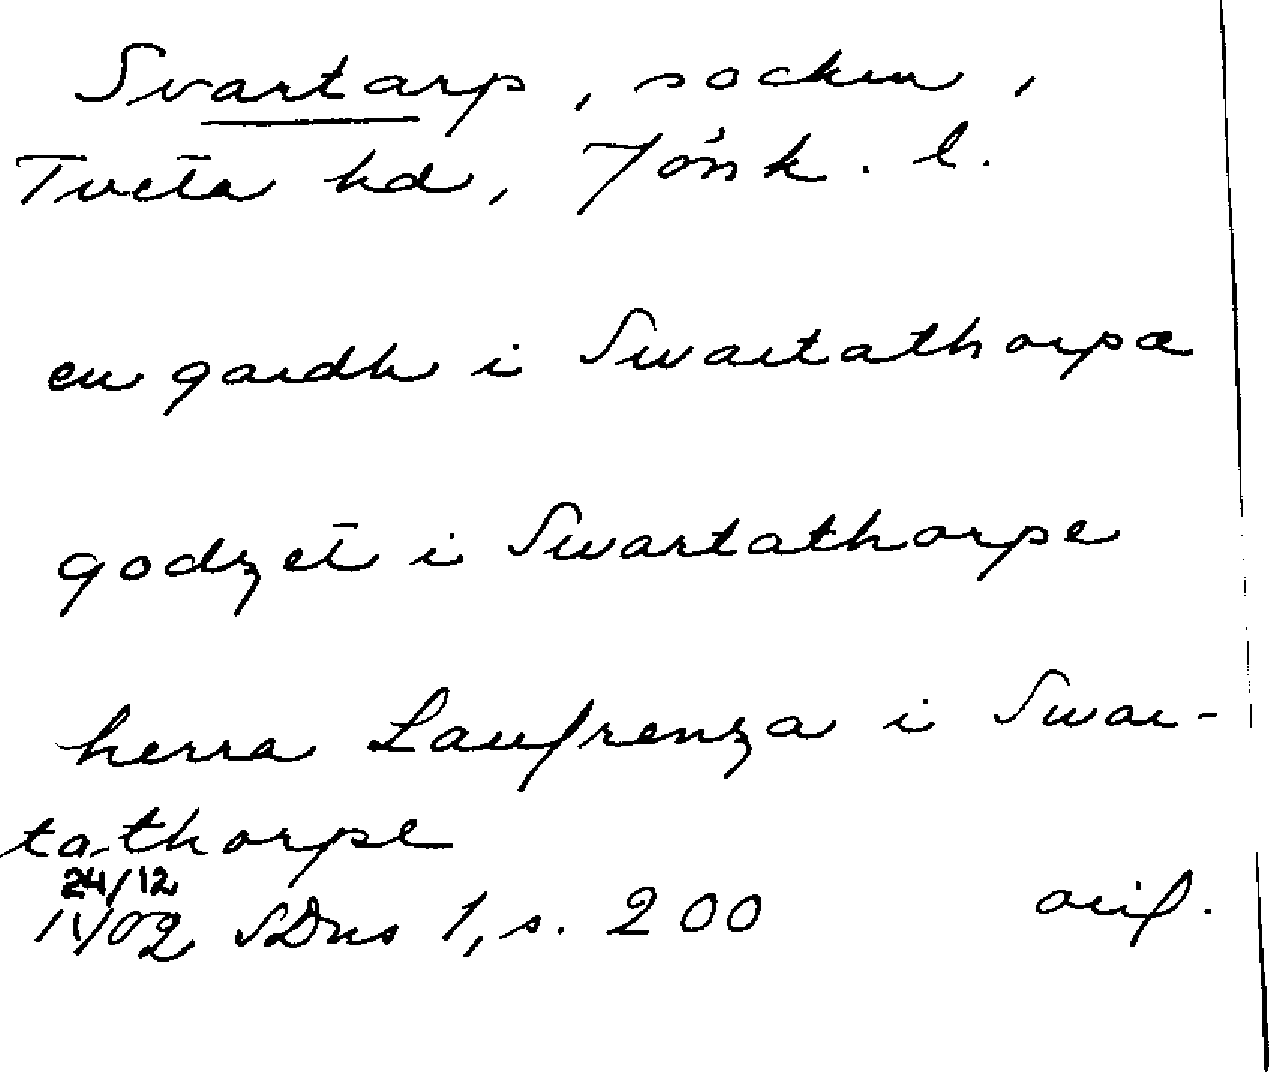 Svartarp, socken,
Tveta hd, Jönk. l.
en gardh i Swartathorpæ
godzet i Swartathorpe
herra Laufrenza i Swar-
tathorpe
24/12
1402 SDns 1, s. 200 orig.